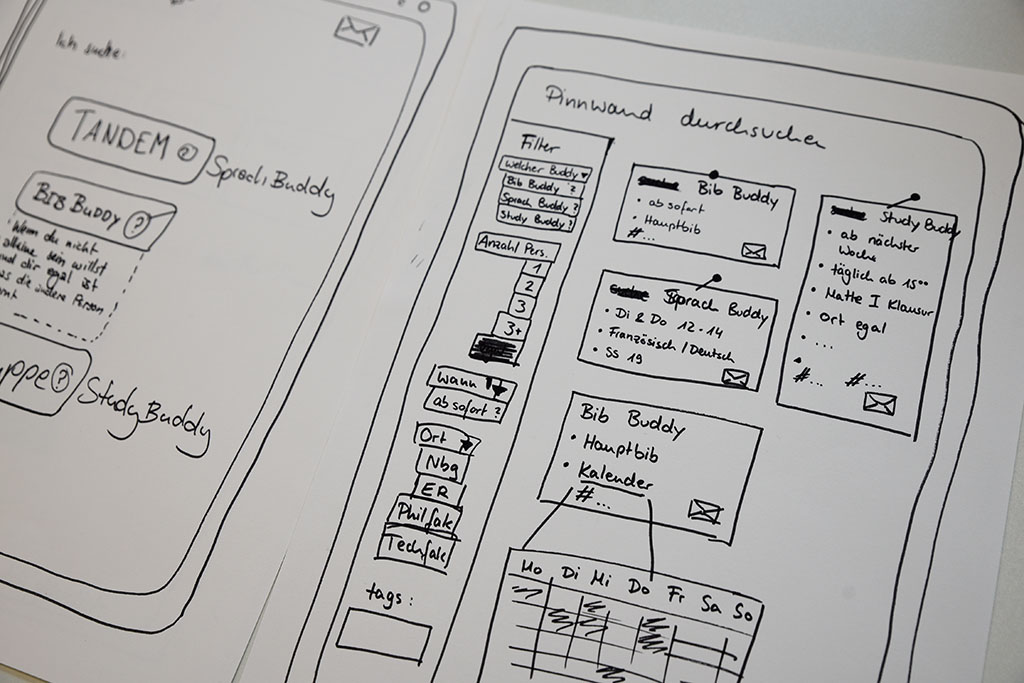 Ich suche:
TANDEM ?
Sprach Buddy
BIB BUDDY ?
Wenn du nicht
alleine sein willst
und dir egal ist
was die andere Person
ppe ?
Study Buddy
Pinnwand durchsuchen
Filter
Welcher Buddy
Bib Buddy ?
Sprach Buddy ?
Study Buddy ?
Anzahl Pers.
1
2
3
3+
Wann
ab sofort ?
Ort
Nbg
ER
Philfak
Techfak
tags:
Bib Buddy
• ab sofort
• Hauptbib
#...
Sprach Buddy
• Di & Do 12-14
• Französisch / Deutsch
• SS 19
Study Buddy
• ab nächster
Woche
• täglich ab 15⁰⁰
• Mathe I Klausur
• Ort egal
• ....
#... #...
Bib Buddy
• Hauptbib
• Kalender
#...
Mo Di Mi Do Fr Sa So